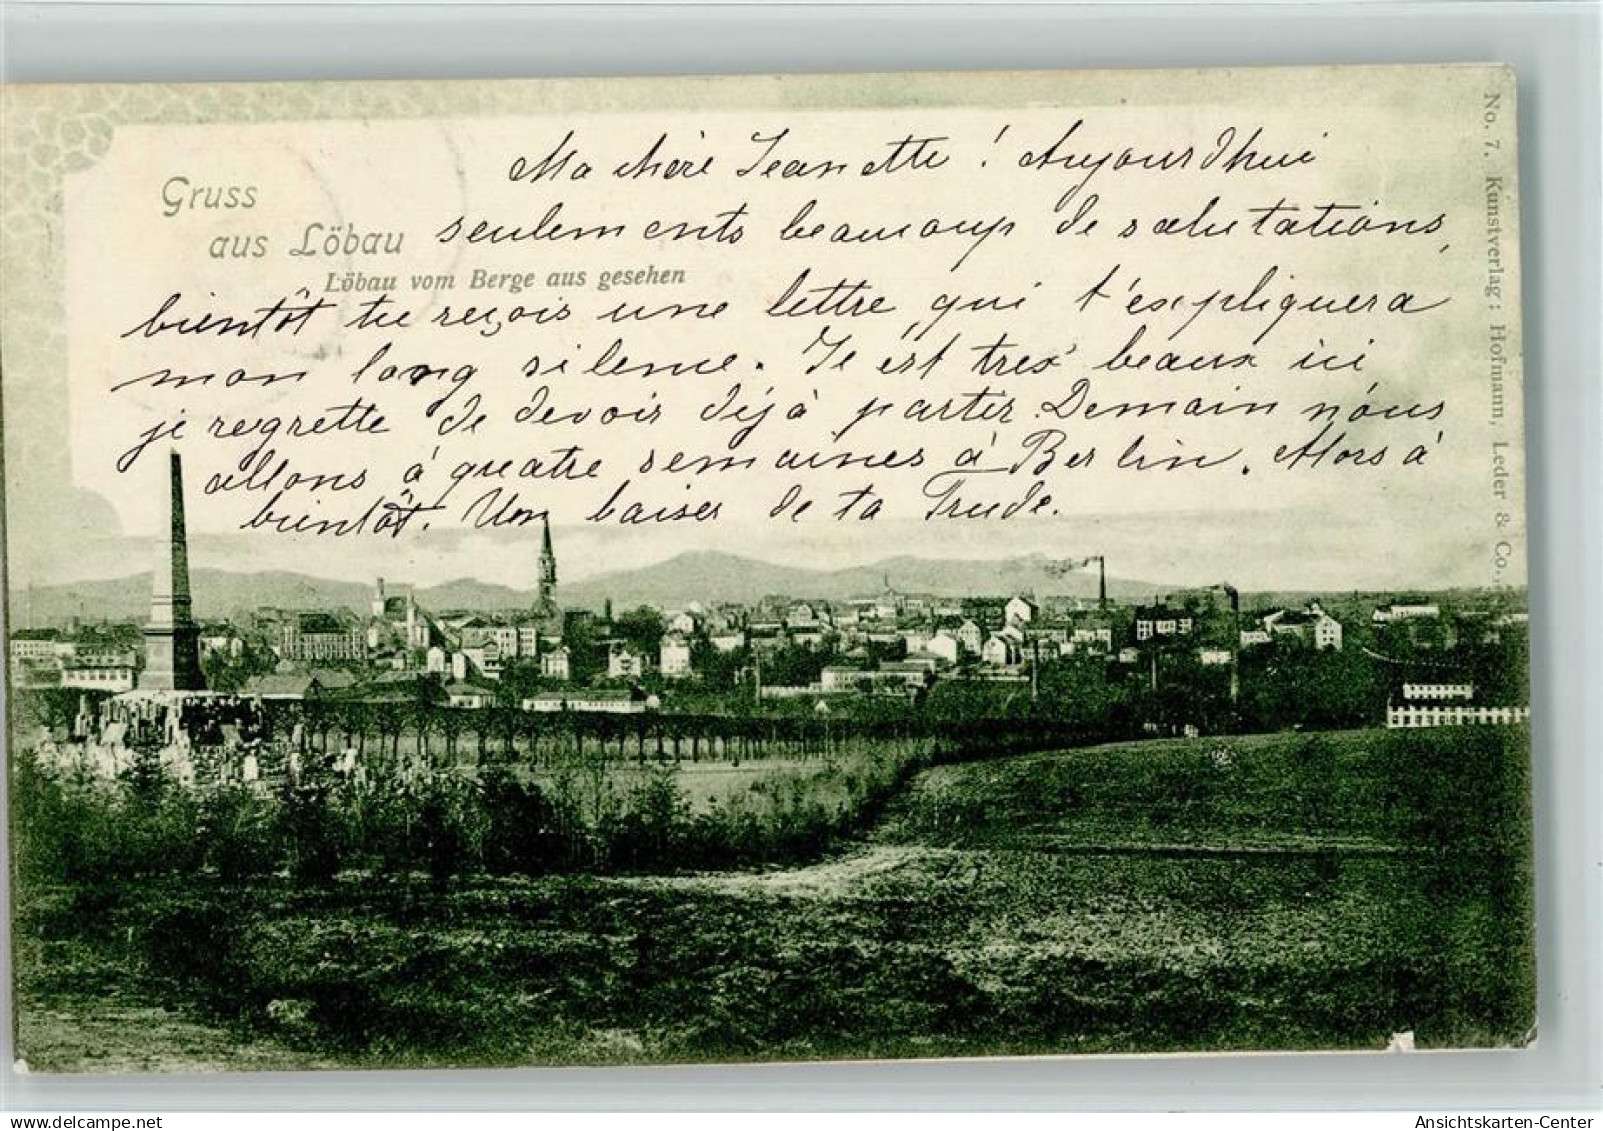 Gruss
aus Löbau
Löbau vom Berge aus gesehen
Ma chère Jeanette ! Aujourdhui
seulements beaucoup de salutations,
bientôt tu reçois une lettre, qui t'expliquera
mon long silence. Je est tres beaux ici
je regrette de devoir déjà partir. Demain nous
allons à quatre semaines à Berlin. Alors à
bientôt. Un baiser de ta Trude.
No. 7. Kunstverlag: Hofmann, Leder & Co.,
delcampe.net
Ansichtskarten-Center